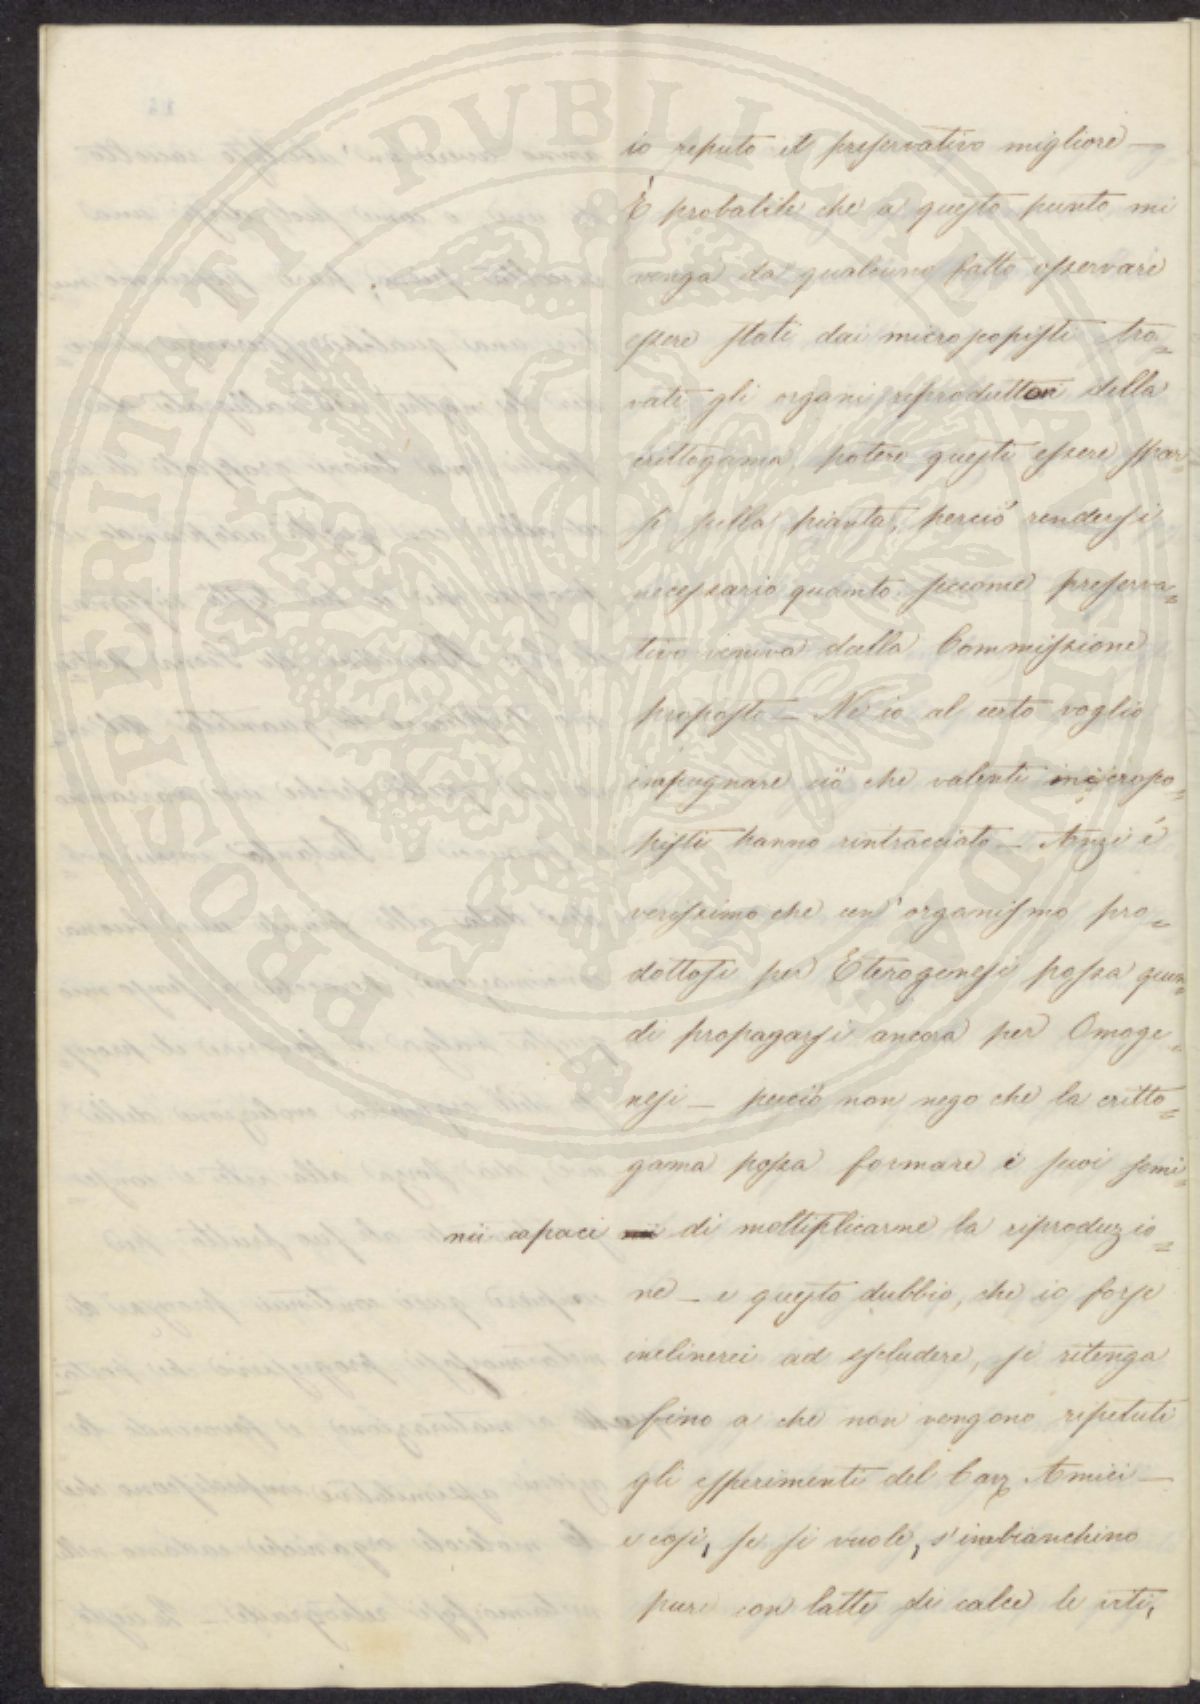 io reputo il preservativo migliore —
È probabile che a questo punto mi
venga da qualcuno fatto osservare
essere stati dai microscopisti tro=
vati gli organi riproduttori della
crittogama, potere questi essere spar=
si sulla pianta, perciò rendersi
necessario quanto, siccome preserva=
tivo veniva dalla Commissione
proposto — Nè io al certo voglio
impugnare ciò che valenti microsco=
pisti hanno rintracciato — Anzi è
verissimo che un' organismo pro=
dottosi per Eterogenesi possa quin=
di propagarsi ancora per Omoge=
nesi — perciò non nego che la critto=
gama possa formare i suoi semi=
nii capaci di moltiplicarne la riproduzio=
ne — e questo dubbio, che io forse
inclinerei ad escludere, si ritenga
fino a che non vengono ripetuti
gli esperimenti del Cav. Amici —
e così, se si vuole, s'imbianchino
pure con latte di calce le viti,
PROSPERITATI PUBLICAE AUGENDAE